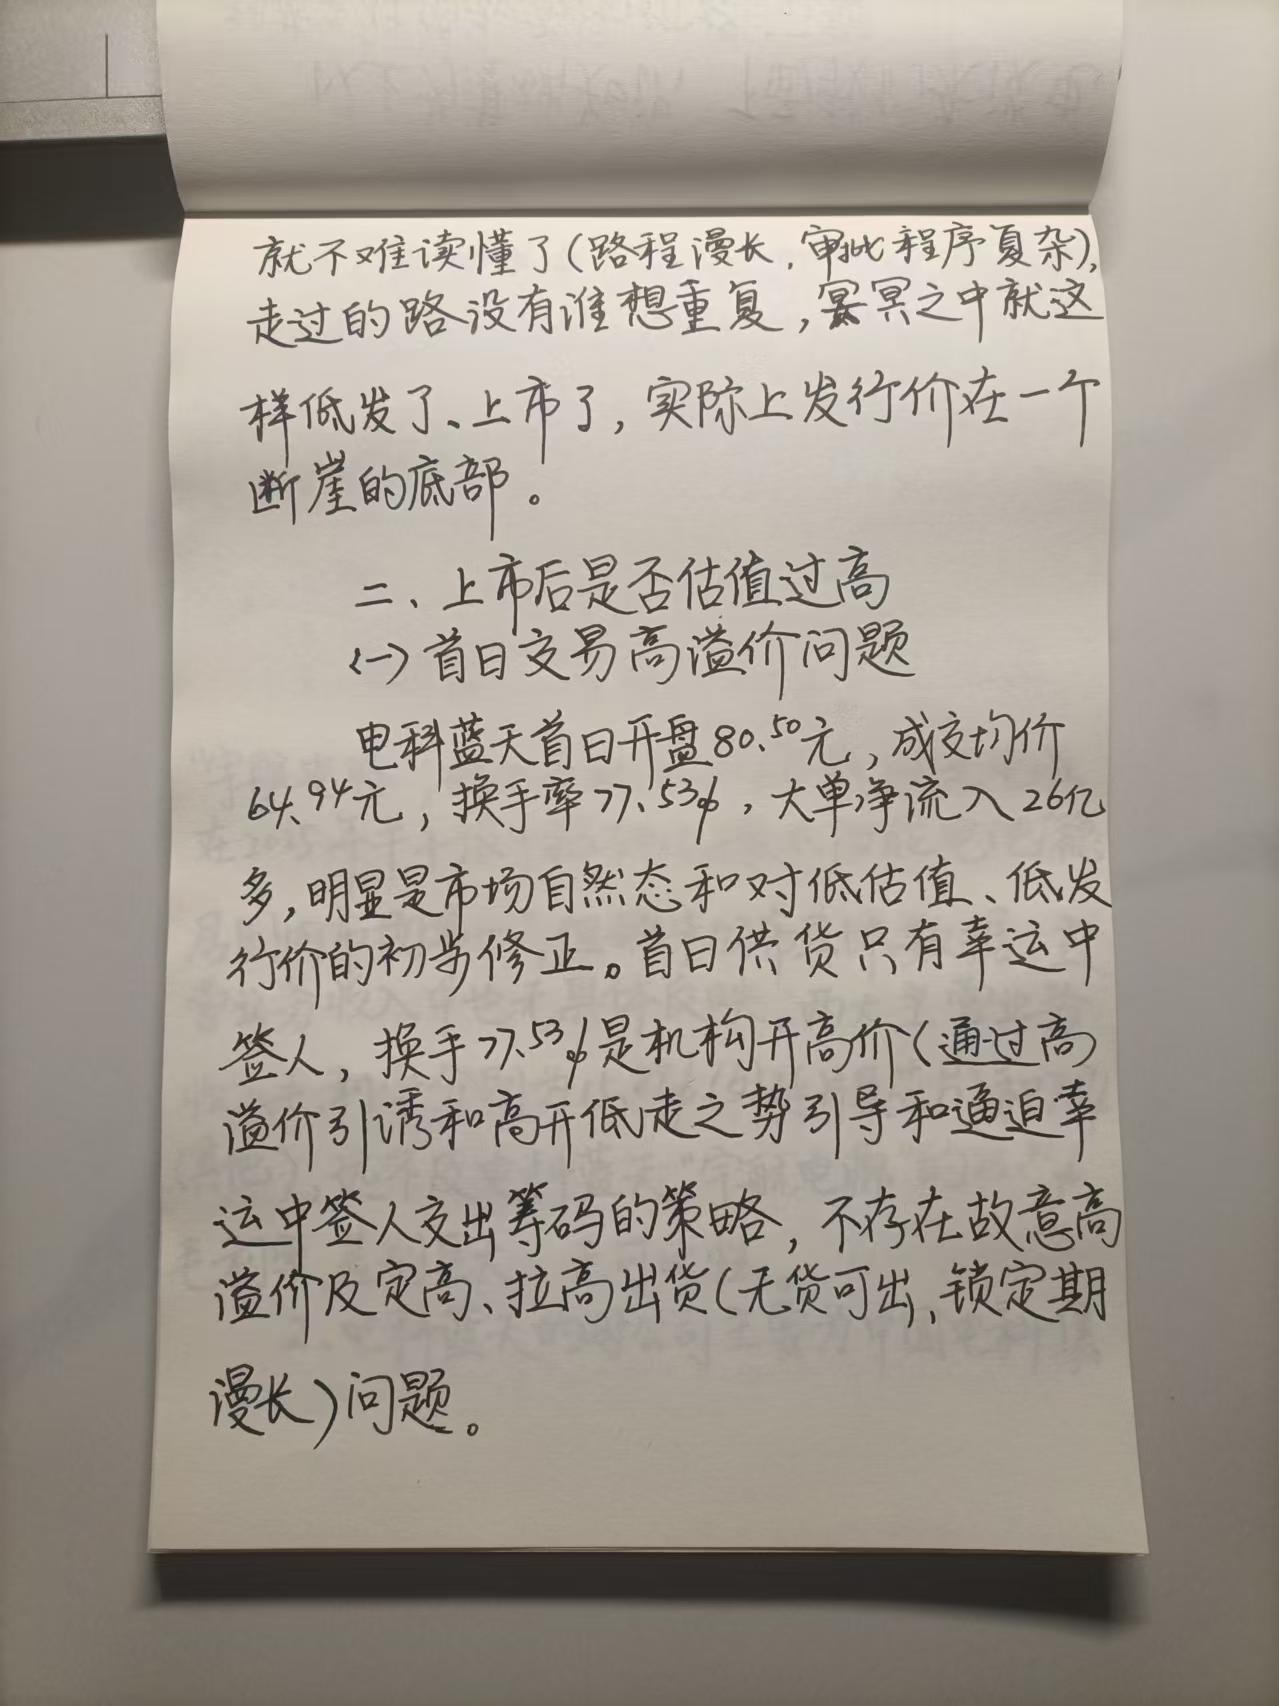 就不难读懂了(路程漫长,审批程序复杂),
走过的路没有谁想重复,冥冥之中就这
样低发了、上市了,实际上发行价在一个
断崖的底部。
二、上市后是否估值过高
(一)首日交易高溢价问题
电科蓝天首日开盘80.50元,成交均价
64.94元,换手率77.53%,大单净流入26亿
多,明显是市场自然态和对低估值、低发
行价的初步修正。首日供货只有幸运中
签人,换手77.53%是机构开高价(通过高
溢价引诱和高开低走之势引导和逼迫幸
运中签人交出筹码的策略,不存在故意高
溢价及定高、拉高出货(无货可出,锁定期
漫长)问题。